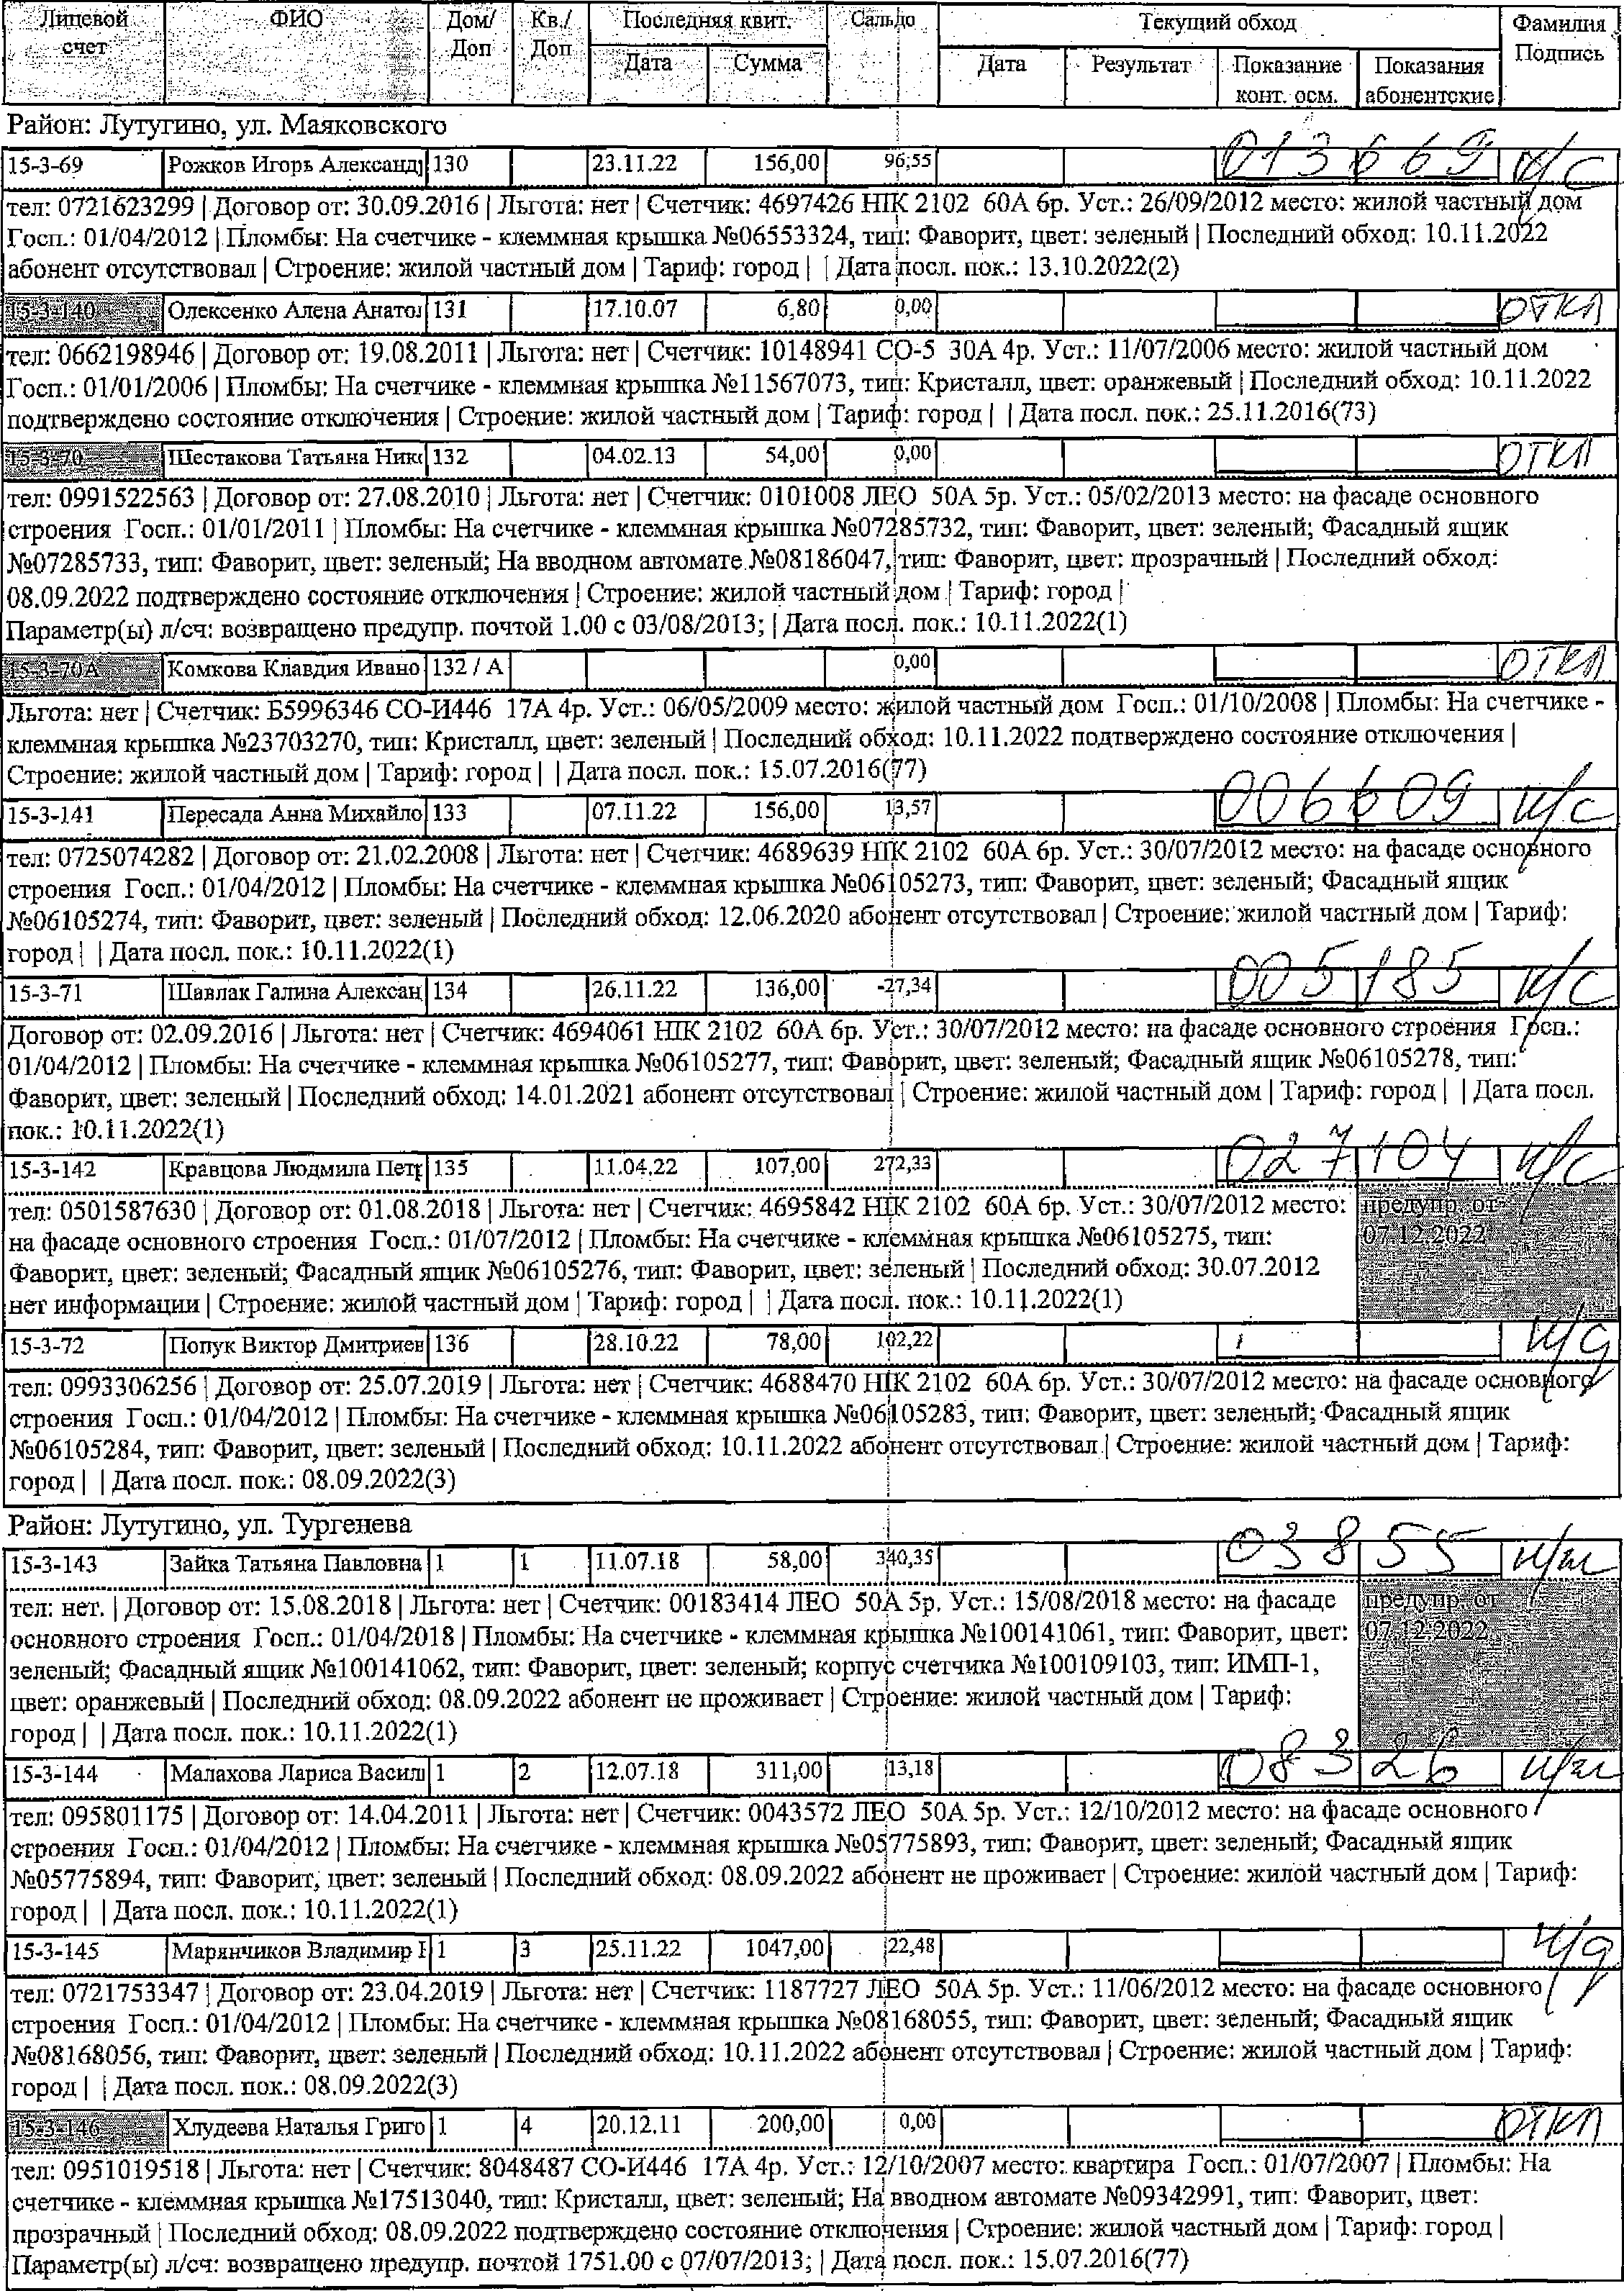 Лицевой счет | ФИО | Дом/ Доп | Кв./ Доп | Последняя квит. | Сальдо | Текущий обход | Фамилия Подпись
Дата | Сумма | Дата | Результат | Показание конт. осм. | Показания абонентские
Район: Лутугино, ул. Маяковского
15-3-69 Рожков Игорь Александр 130 23.11.22 156,00 96,55 013669 н/с
тел: 0721623299 | Договор от: 30.09.2016 | Льгота: нет | Счетчик: 4697426 НІК 2102 60А 6р. Уст.: 26/09/2012 место: жилой частный дом
Госп.: 01/04/2012 | Пломбы: На счетчике - клеммная крышка №06553324, тип: Фаворит, цвет: зеленый | Последний обход: 10.11.2022
абонент отсутствовал | Строение: жилой частный дом | Тариф: город | | Дата посл. пок.: 13.10.2022(2)
15-3-140 Олексенко Алена Анатол 131 17.10.07 6,80 0,00 ОТКЛ
тел: 0662198946 | Договор от: 19.08.2011 | Льгота: нет | Счетчик: 10148941 СО-5 30А 4р. Уст.: 11/07/2006 место: жилой частный дом
Госп.: 01/01/2006 | Пломбы: На счетчике - клеммная крышка №11567073, тип: Кристалл, цвет: оранжевый | Последний обход: 10.11.2022
подтверждено состояние отключения | Строение: жилой частный дом | Тариф: город | | Дата посл. пок.: 25.11.2016(73)
15-3-70 Шестакова Татьяна Нико 132 04.02.13 54,00 0,00 ОТКЛ
тел: 0991522563 | Договор от: 27.08.2010 | Льгота: нет | Счетчик: 0101008 ЛЕО 50А 5р. Уст.: 05/02/2013 место: на фасаде основного
строения Госп.: 01/01/2011 | Пломбы: На счетчике - клеммная крышка №07285732, тип: Фаворит, цвет: зеленый; Фасадный ящик
№07285733, тип: Фаворит, цвет: зеленый; На вводном автомате №08186047, тип: Фаворит, цвет: прозрачный | Последний обход:
08.09.2022 подтверждено состояние отключения | Строение: жилой частный дом | Тариф: город |
Параметр(ы) л/сч: возвращено предупр. почтой 1.00 с 03/08/2013; | Дата посл. пок.: 10.11.2022(1)
15-3-70А Комкова Клавдия Ивано 132 / А 0,00 ОТКЛ
Льгота: нет | Счетчик: Б5996346 СО-И446 17А 4р. Уст.: 06/05/2009 место: жилой частный дом Госп.: 01/10/2008 | Пломбы: На счетчике -
клеммная крышка №23703270, тип: Кристалл, цвет: зеленый | Последний обход: 10.11.2022 подтверждено состояние отключения |
Строение: жилой частный дом | Тариф: город | | Дата посл. пок.: 15.07.2016(77)
15-3-141 Пересада Анна Михайло 133 07.11.22 156,00 13,57 006609 н/с
тел: 0725074282 | Договор от: 21.02.2008 | Льгота: нет | Счетчик: 4689639 НІК 2102 60А 6р. Уст.: 30/07/2012 место: на фасаде основного
строения Госп.: 01/04/2012 | Пломбы: На счетчике - клеммная крышка №06105273, тип: Фаворит, цвет: зеленый; Фасадный ящик
№06105274, тип: Фаворит, цвет: зеленый | Последний обход: 12.06.2020 абонент отсутствовал | Строение: жилой частный дом | Тариф:
город | | Дата посл. пок.: 10.11.2022(1)
15-3-71 Шавлак Галина Алексан 134 26.11.22 136,00 -27,34 005185 н/с
Договор от: 02.09.2016 | Льгота: нет | Счетчик: 4694061 НІК 2102 60А 6р. Уст.: 30/07/2012 место: на фасаде основного строения Госп.:
01/04/2012 | Пломбы: На счетчике - клеммная крышка №06105277, тип: Фаворит, цвет: зеленый; Фасадный ящик №06105278, тип:
Фаворит, цвет: зеленый | Последний обход: 14.01.2021 абонент отсутствовал | Строение: жилой частный дом | Тариф: город | | Дата посл.
пок.: 10.11.2022(1)
15-3-142 Кравцова Людмила Петр 135 11.04.22 107,00 272,33 027104 н/с
тел: 0501587630 | Договор от: 01.08.2018 | Льгота: нет | Счетчик: 4695842 НІК 2102 60А 6р. Уст.: 30/07/2012 место: предупр. от
на фасаде основного строения Госп.: 01/07/2012 | Пломбы: На счетчике - клеммная крышка №06105275, тип: 07.12.2022
Фаворит, цвет: зеленый; Фасадный ящик №06105276, тип: Фаворит, цвет: зеленый | Последний обход: 30.07.2012
нет информации | Строение: жилой частный дом | Тариф: город | | Дата посл. пок.: 10.11.2022(1)
15-3-72 Попук Виктор Дмитриев 136 28.10.22 78,00 102,22 н/д
тел: 0993306256 | Договор от: 25.07.2019 | Льгота: нет | Счетчик: 4688470 НІК 2102 60А 6р. Уст.: 30/07/2012 место: на фасаде основного
строения Госп.: 01/04/2012 | Пломбы: На счетчике - клеммная крышка №06105283, тип: Фаворит, цвет: зеленый; Фасадный ящик
№06105284, тип: Фаворит, цвет: зеленый | Последний обход: 10.11.2022 абонент отсутствовал | Строение: жилой частный дом | Тариф:
город | | Дата посл. пок.: 08.09.2022(3)
Район: Лутугино, ул. Тургенева
15-3-143 Зайка Татьяна Павловна 1 1 11.07.18 58,00 340,35 03855
тел: нет. | Договор от: 15.08.2018 | Льгота: нет | Счетчик: 00183414 ЛЕО 50А 5р. Уст.: 15/08/2018 место: на фасаде предупр. от
основного строения Госп.: 01/04/2018 | Пломбы: На счетчике - клеммная крышка №100141061, тип: Фаворит, цвет: 07.12.2022
зеленый; Фасадный ящик №100141062, тип: Фаворит, цвет: зеленый; корпус счетчика №100109103, тип: ИМП-1,
цвет: оранжевый | Последний обход: 08.09.2022 абонент не проживает | Строение: жилой частный дом | Тариф:
город | | Дата посл. пок.: 10.11.2022(1)
15-3-144 Малахова Лариса Васил 1 2 12.07.18 311,00 13,18 08326
тел: 095801175 | Договор от: 14.04.2011 | Льгота: нет | Счетчик: 0043572 ЛЕО 50А 5р. Уст.: 12/10/2012 место: на фасаде основного
строения Госп.: 01/04/2012 | Пломбы: На счетчике - клеммная крышка №05775893, тип: Фаворит, цвет: зеленый; Фасадный ящик
№05775894, тип: Фаворит, цвет: зеленый | Последний обход: 08.09.2022 абонент не проживает | Строение: жилой частный дом | Тариф:
город | | Дата посл. пок.: 10.11.2022(1)
15-3-145 Марянчиков Владимир 1 3 25.11.22 1047,00 22,48 н/д
тел: 0721753347 | Договор от: 23.04.2019 | Льгота: нет | Счетчик: 1187727 ЛЕО 50А 5р. Уст.: 11/06/2012 место: на фасаде основного
строения Госп.: 01/04/2012 | Пломбы: На счетчике - клеммная крышка №08168055, тип: Фаворит, цвет: зеленый; Фасадный ящик
№08168056, тип: Фаворит, цвет: зеленый | Последний обход: 10.11.2022 абонент отсутствовал | Строение: жилой частный дом | Тариф:
город | | Дата посл. пок.: 08.09.2022(3)
15-3-146 Хлудеева Наталья Григо 1 4 20.12.11 200,00 0,00 ОТКЛ
тел: 0951019518 | Льгота: нет | Счетчик: 8048487 СО-И446 17А 4р. Уст.: 12/10/2007 место: квартира Госп.: 01/07/2007 | Пломбы: На
счетчике - клеммная крышка №17513040, тип: Кристалл, цвет: зеленый; На вводном автомате №09342991, тип: Фаворит, цвет:
прозрачный | Последний обход: 08.09.2022 подтверждено состояние отключения | Строение: жилой частный дом | Тариф: город |
Параметр(ы) л/сч: возвращено предупр. почтой 1751.00 с 07/07/2013; | Дата посл. пок.: 15.07.2016(77)